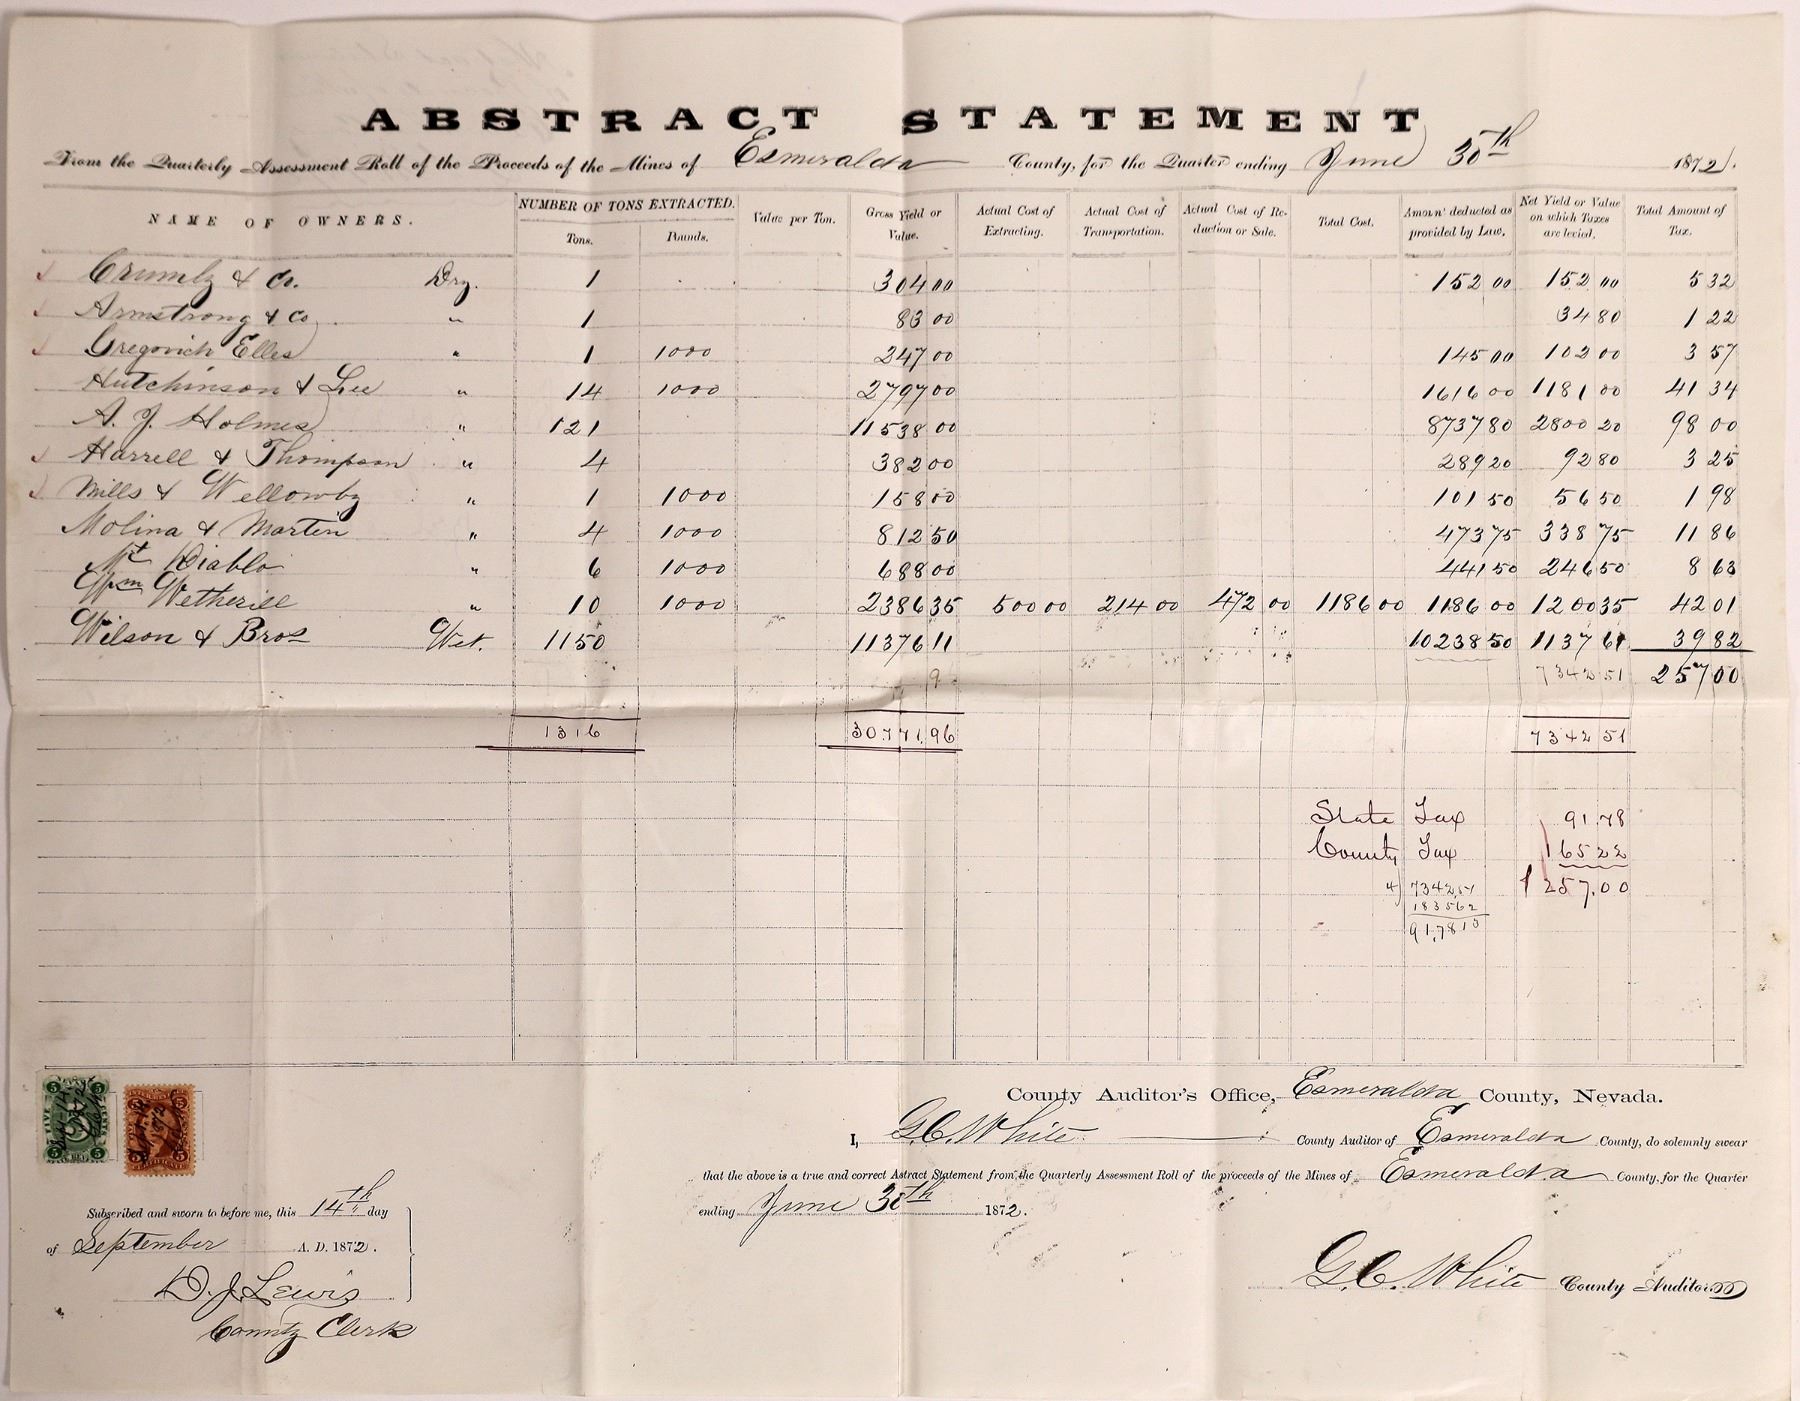 ABSTRACT STATEMENT
From the Quarterly Assessment Roll of the Proceeds of the Mines of Esmeralda County, for the Quarter ending June 30th 1872.
NAME OF OWNERS. NUMBER OF TONS EXTRACTED. Tons. Pounds. Value per Ton. Gross Yield or Value. Actual Cost of Extracting. Actual Cost of Transportation. Actual Cost of Reduction or Sale. Total Cost. Amoun' deducted as provided by Law. Net Yield or Value on which Taxes are levied. Total Amount of Tax.
Crumly & Co. Dry. 1 304 00 152 00 152 00 5 32
Armstrong & Co. " 1 83 00 34 80 1 22
Gregovich Elles " 1 1000 247 00 145 00 102 00 3 57
Hutchinson & Lee " 14 1000 2797 00 1616 00 1181 00 41 34
A. J. Holmes " 121 11538 00 8737 80 2800 20 98 00
Harrell & Thompson " 4 382 00 289 20 92 80 3 25
Mills & Wellowby " 1 1000 158 00 101 50 56 50 1 98
Molina & Martin " 4 1000 812 50 473 75 338 75 11 86
Mt Diablo " 6 1000 688 00 441 50 246 50 8 63
Wm Wetherill " 10 1000 2386 35 500 00 214 00 472 00 1186 00 1186 00 1200 35 42 01
Wilson & Bros Wet. 1150 11376 11 10238 50 1137 61 39 82
9 7342 51 257 00
1316 30771.96 7342 51
State Tax 91.78
County Tax 165 22
257.00
4) 7342.51
183562
91.7813
County Auditor's Office, Esmeralda County, Nevada.
I, G. C. White County Auditor of Esmeralda County, do solemnly swear
that the above is a true and correct Astract Statement from the Quarterly Assessment Roll of the proceeds of the Mines of Esmeralda County, for the Quarter
ending June 30th 1872.
G. C. White County Auditor
Subscribed and sworn to before me, this 14th day
of September A. D. 1872.
D. J. Lewis
County Clerk